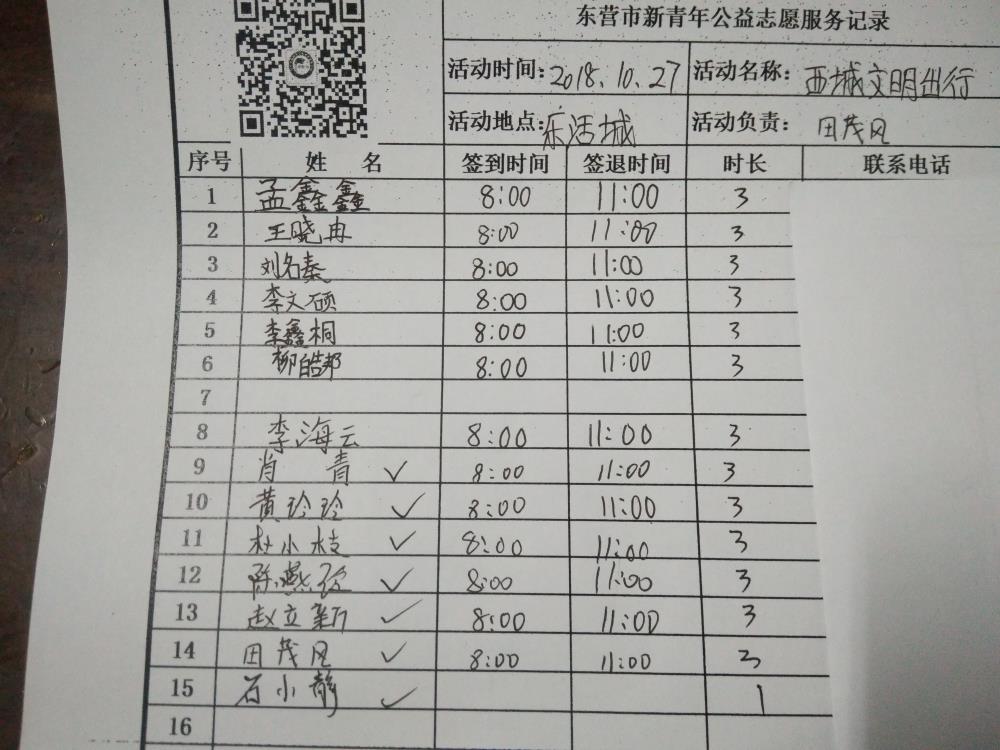 东营市新青年公益志愿服务记录
活动时间：2018.10.27 活动名称：西城文明出行
活动地点：乐活城 活动负责：田茂风
序号 姓名 签到时间 签退时间 时长 联系电话
1 孟鑫鑫 8:00 11:00 3
2 王晓冉 8:00 11:00 3
3 刘名秦 8:00 11:00 3
4 李文硕 8:00 11:00 3
5 李鑫桐 8:00 11:00 3
6 柳皓邦 8:00 11:00 3
7
8 李海云 8:00 11:00 3
9 肖青 ✓ 8:00 11:00 3
10 黄玲玲 ✓ 8:00 11:00 3
11 杜小枝 ✓ 8:00 11:00 3
12 陈燕玲 ✓ 8:00 11:00 3
13 赵立新 ✓ 8:00 11:00 3
14 田茂风 ✓ 8:00 11:00 3
15 石小静 ✓ 1
16